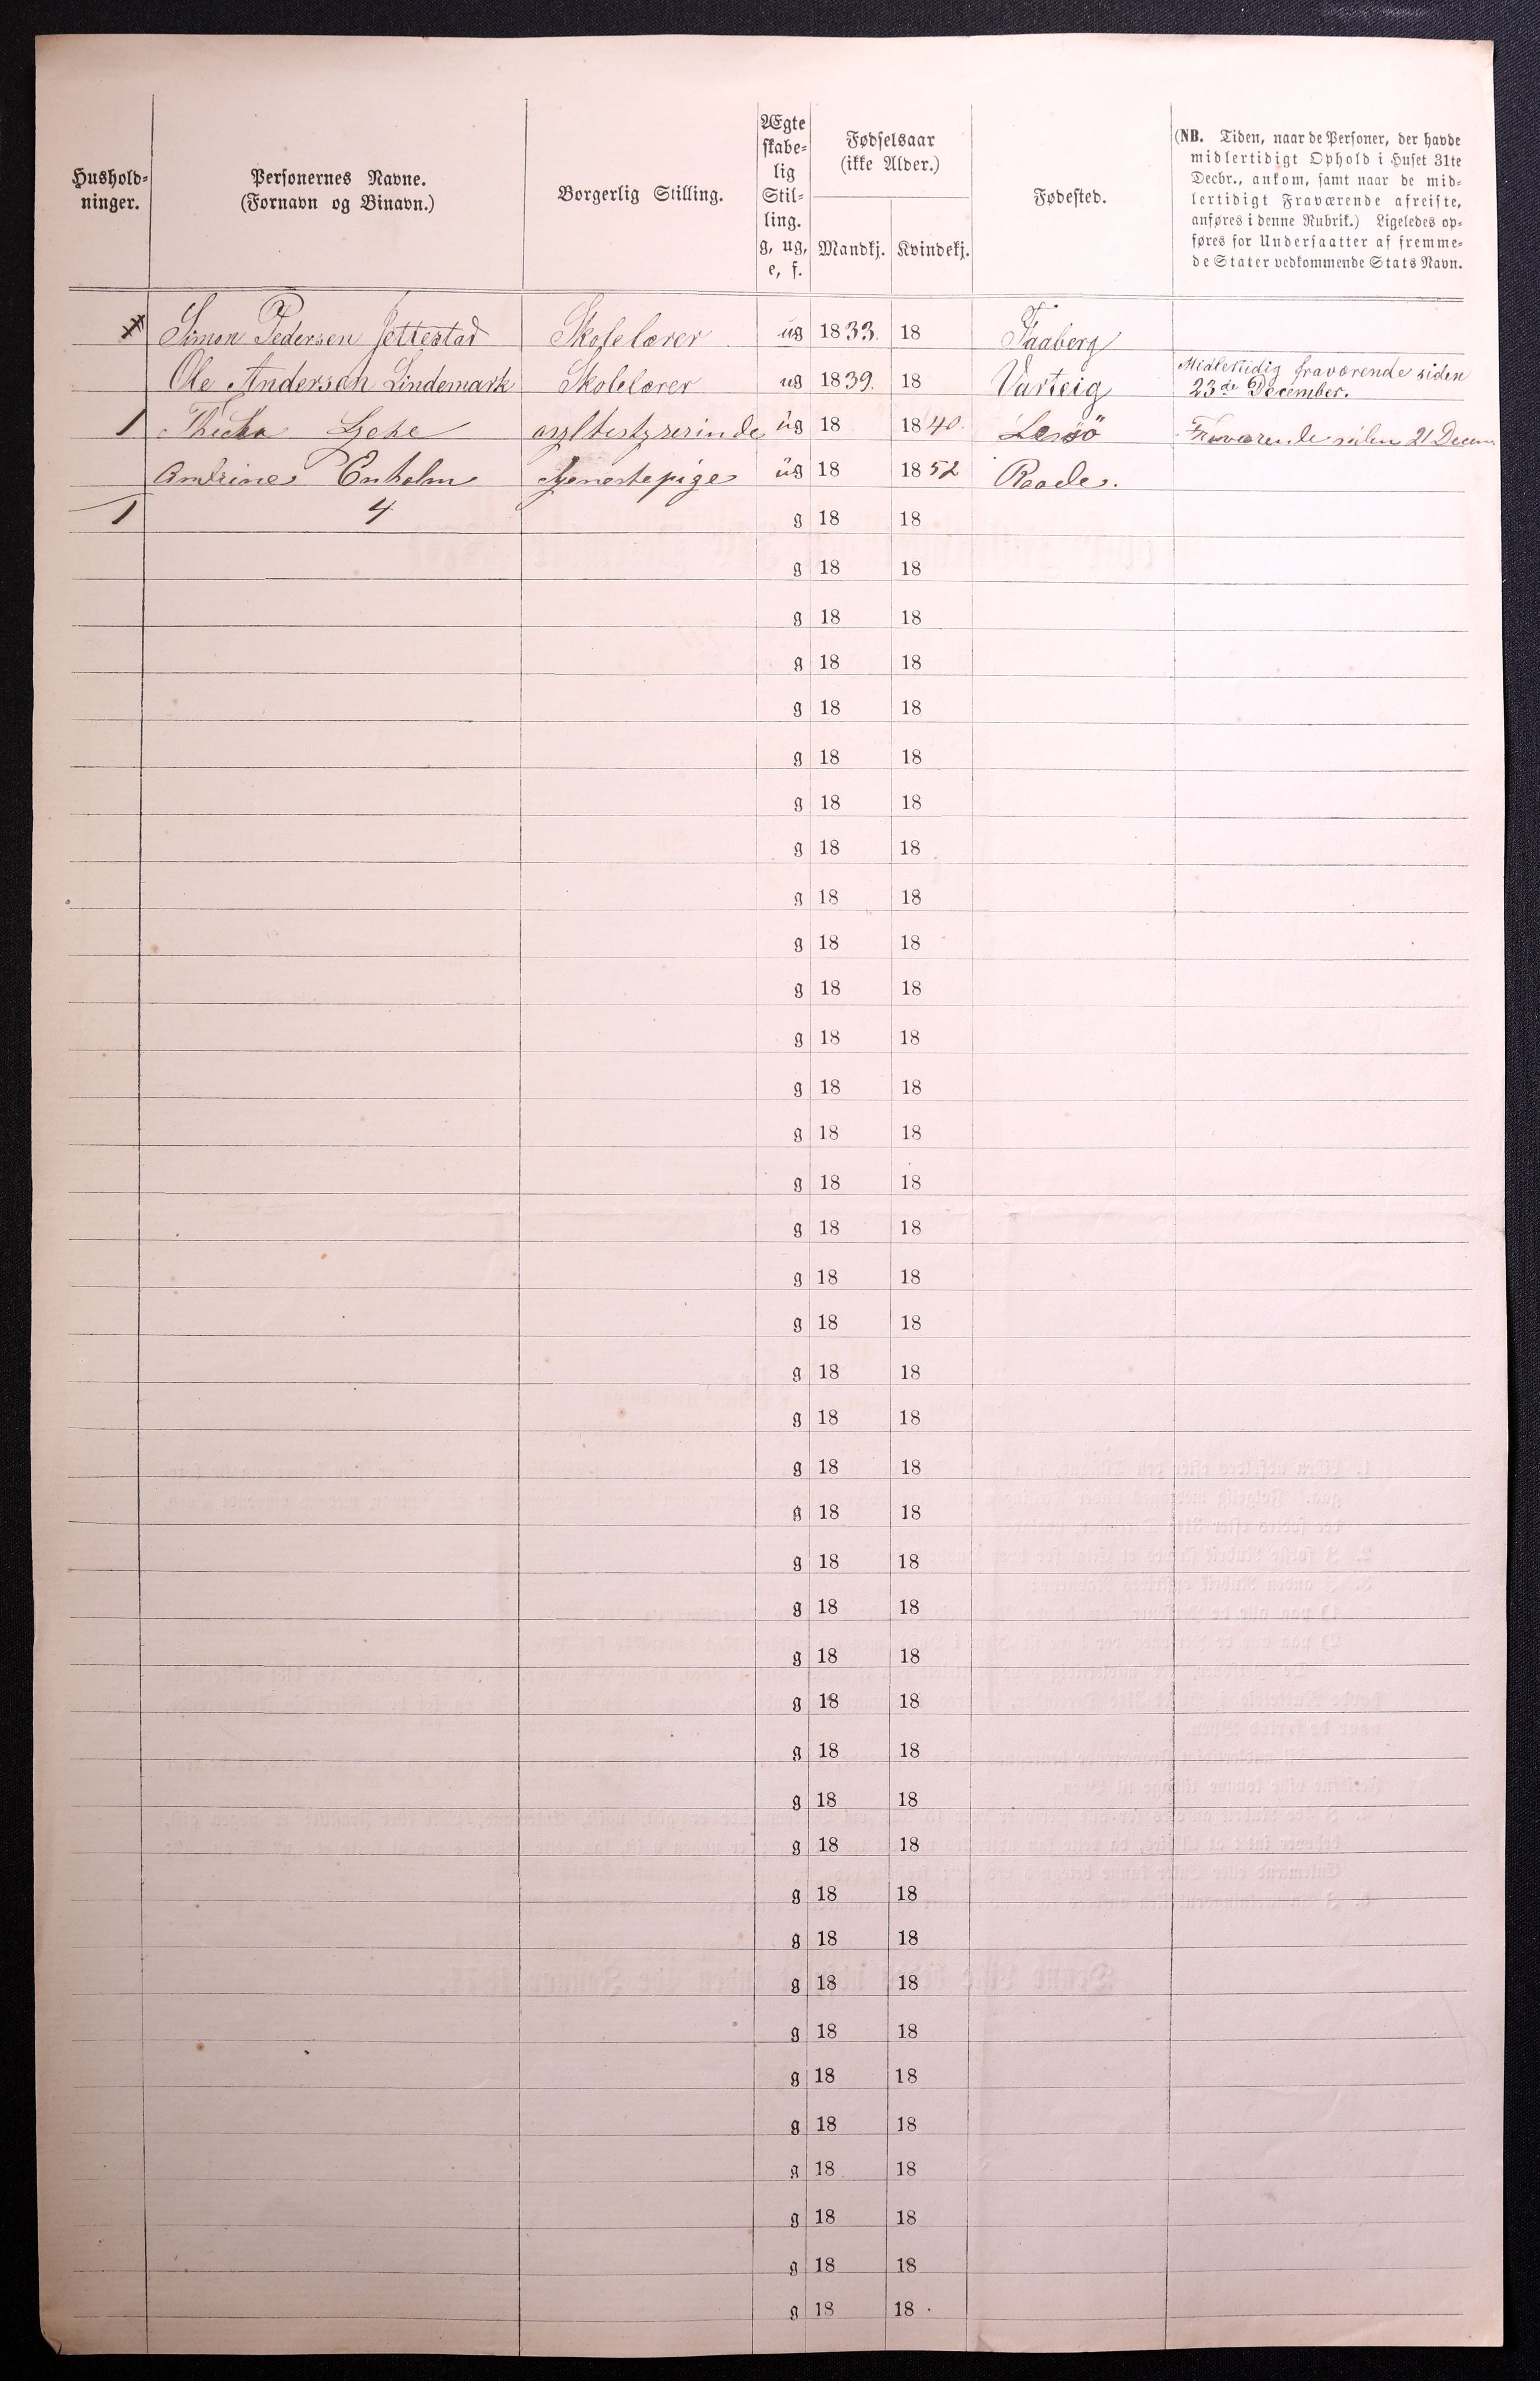 Hushold-
ninger.
Personernes Navne.
(Fornavn og Binavn.)
Borgerlig Stilling.
Ægte
skabe-
lig
Stil-
ling.
g, ug,
e, f.
Fødselsaar
(ikke Alder.)
Mandkj. Kvindekj.
Fødested.
(NB. Tiden, naar de Personer, der havde
midlertidigt Ophold i Huset 31te
Decbr., ankom, samt naar de mid-
lertidigt Fraværende afreiste,
anføres i denne Rubrik.) Ligeledes op-
føres for Undersaatter af fremme-
de Stater vedkommende Stats Navn.
Simon Pedersen Jettestad Skolelærer ug 1833. 18 Faaberg
Ole Anderson Lindemark Skolelærer ug 1839. 18 Varteig Midlertidig fraværende siden
23de December.
1 asylbestyrerinde ug 18 1840. Lesjö Fraværende siden 21 Decem
Andrine Enholm tjenestepige ug 18 1852 Raade.
1 4 g 18 18
g 18 18
g 18 18
g 18 18
g 18 18
g 18 18
g 18 18
g 18 18
g 18 18
g 18 18
g 18 18
g 18 18
g 18 18
g 18 18
g 18 18
g 18 18
g 18 18
g 18 18
g 18 18
g 18 18
g 18 18
g 18 18
g 18 18
g 18 18
g 18 18
g 18 18
g 18 18
g 18 18
g 18 18
g 18 18
g 18 18
g 18 18
g 18 18
g 18 18
g 18 18
g 18 18
g 18 18
g 18 18
g 18 18